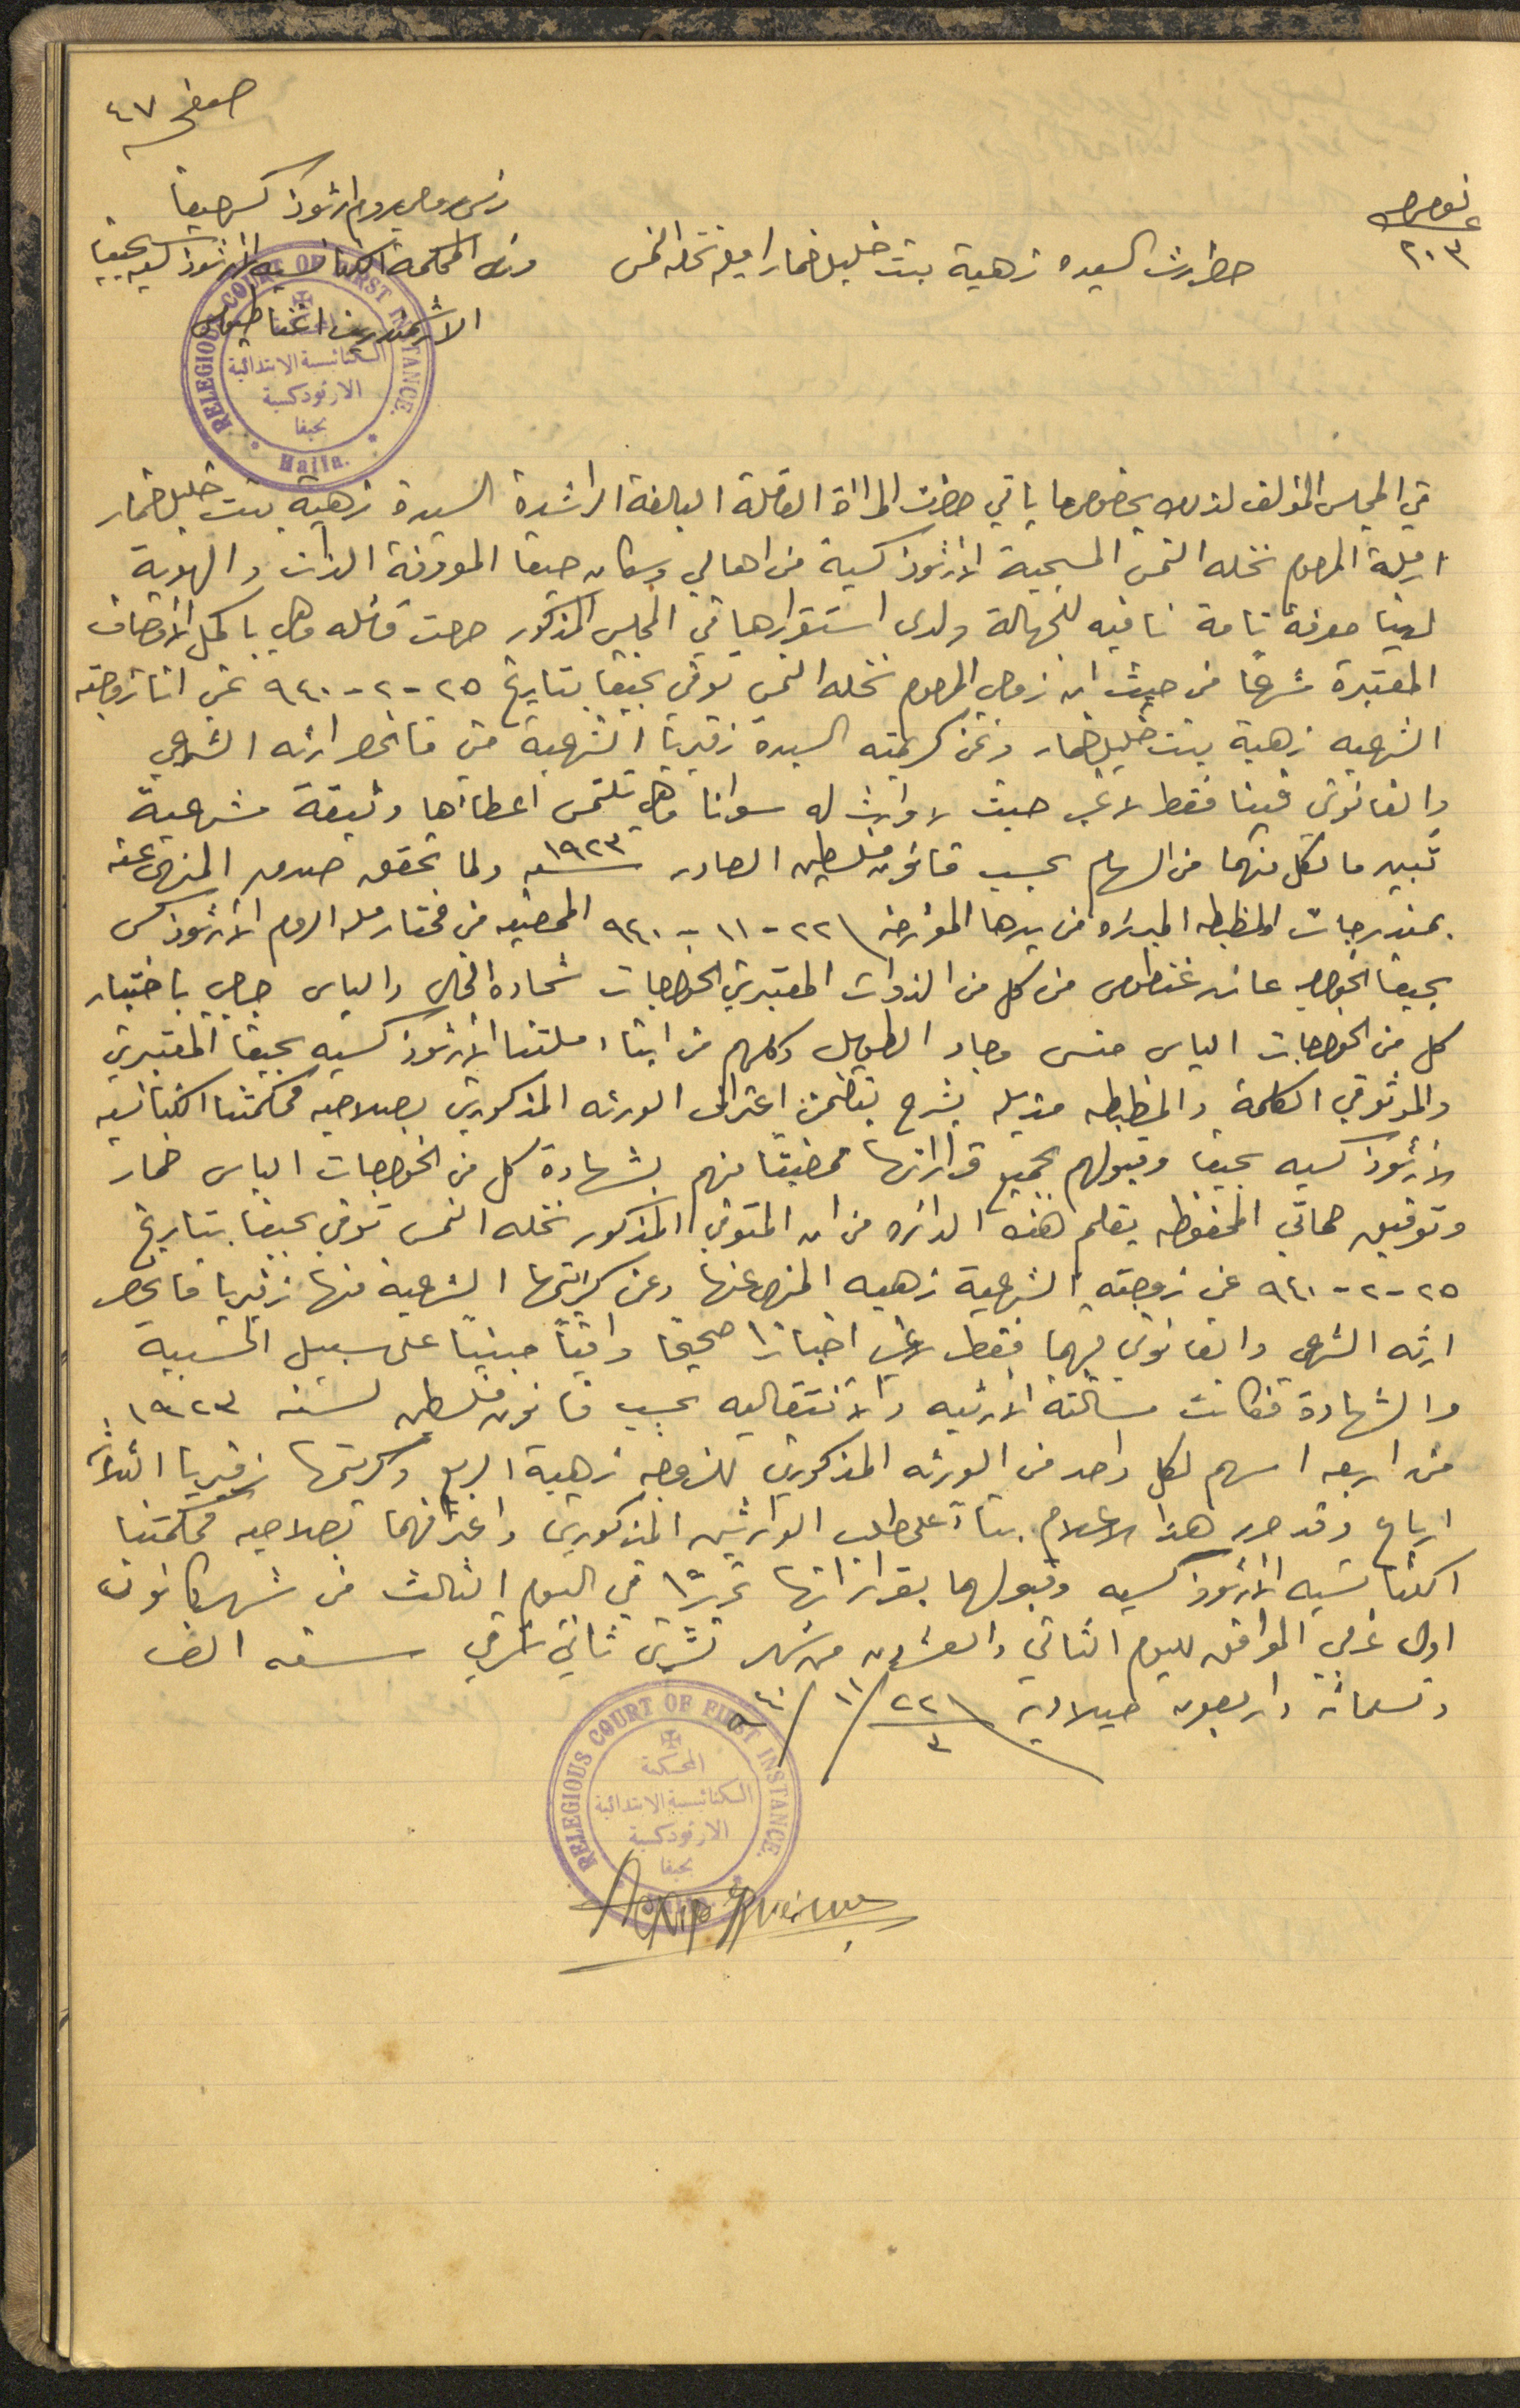 صفحة ٤٧
نومرو
٢٠٣
حصر ارث السيده زهية بنت خليل خمار ارملة نخله النمس
رئيس روحي روم ارثوذكس حيفا
ورئيس المحكمة الكنائسيه الارثوذكسيه بحيفا
الارشمندريت اغناطيوس
RELEGIOUS COURT OF FIRST INSTANCE.
المحكمة
الكنائسية الابتدائية
الارثوذكسية
بحيفا
Haifa.
في المجلس المؤلف لدينا بخصوص ما ياتي حضرت المرأة العاقلة البالغة الراشدة السيدة زهية بنت خليل خمار
ارملة المرحوم نخله النمس المسيحية الارثوذكسية من اهالي وسكان حيفا المعروفة الذات والهوية
لدينا معرفة تامة نافيه للجهالة ولدى استقرارها في المجلس المذكور صرحت قائله وهي باكمل الاوصاف
المعتبرة شرعًا من حيث ان زوجي المرحوم نخله النمس توفي بحيفا بتاريخ ٢٥-٢-٩٤٠ عني انا زوجته
الشرعيه زهية بنت خليل خمار وعن كريمته السيدة زفيريا الشرعية مني فانحصر ارثه الشرعي
والقانوني فينا فقط لا غير حيث لا وارث له سوانا وهي تلتمس اعطاءها وثيقة مشرعية
تبين ما لكل منهما من السهام بحسب قانون فلسطين الصادر سنة ١٩٢٣ ولما تحقق صدور المنهى عنه
بمندرجات المظبطه المبرزه من يدها المؤرخه ٢٢-١١-٩٤٠ الممضيه من مختار ملة الروم الارثوذكس
بحيفا الخواجه عازر غنطوس من كل من الذوات المعتبرين الخواجات شحاده الخال والياس جراجي باختيار
كل من الخواجات الياس منسى وجاد الطويل وكلهم من ابناء ملتنا الارثوذكسيه بحيفا المعتبرين
والموثوقي الكلمة والمظبطه مذيله بشرح يتضمن اعتراف الورثه المذكورين بصلاحيه محكمتنا الكنائسيه
الارثوذكسيه بحيفا وقبولهم بجميع قراراتها ممضيًا منهم بشهادة كل من الخواجات الياس خمار
وتوفيق حماتي المحفوظه بقلم هذه الدائره من ان المتوفي المذكور نخله النمس توفي بحيفا بتاريخ
٢٥-٢-٩٤٠ عن زوجته الشرعية زهيه المنهى عنها وعن كريمتها الشرعية منها زفيريا فانحصر
ارثه الشرعي والقانوني فيهما فقط لا غير اخبارًا صحيحًا وافيًا مبنيًا على سبيل الحسبية
والشهادة فكانت مسألته الارثيه والانتقاليه بحسب قانون فلسطين لسنه ١٩٢٣
من اربعه اسهم لكل واحد من الورثه المذكورين للزوجه زهية الربع وكريمتها زفيريا الثلاثة
ارباع وقد حرر هذا الاعلام بناءً على طلب الوارثتين المذكورين واعترافهما بصلاحيه محكمتنا
الكنائسيه الارثوذكسيه وقبولهما بقراراتها تحريرًا في اليوم الثالث من شهر كانون
اول غربي الموافق لليوم الثاني والعشرين من شهر تشرين ثاني شرقي سنه الف
وتسعمائة واربعون ميلاديه ٢٢/٣/١١/٩٤٠
RELEGIOUS COURT OF FIRST INSTANCE.
المحكمة
الكنائسية الابتدائية
الارثوذكسية
بحيفا